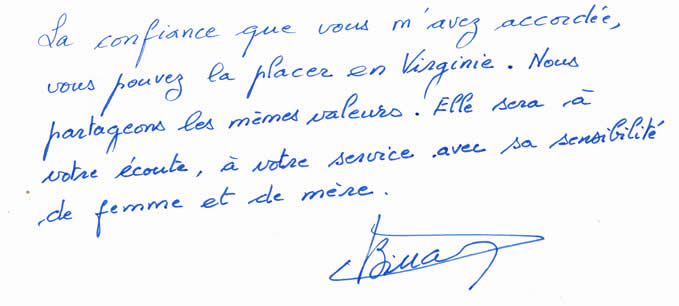 La confiance que vous m'avez accordée,
vous pouvez la placer en Virginie. Nous
partageons les mêmes valeurs. Elle sera à
votre écoute, à votre service avec sa sensibilité
de femme et de mère.